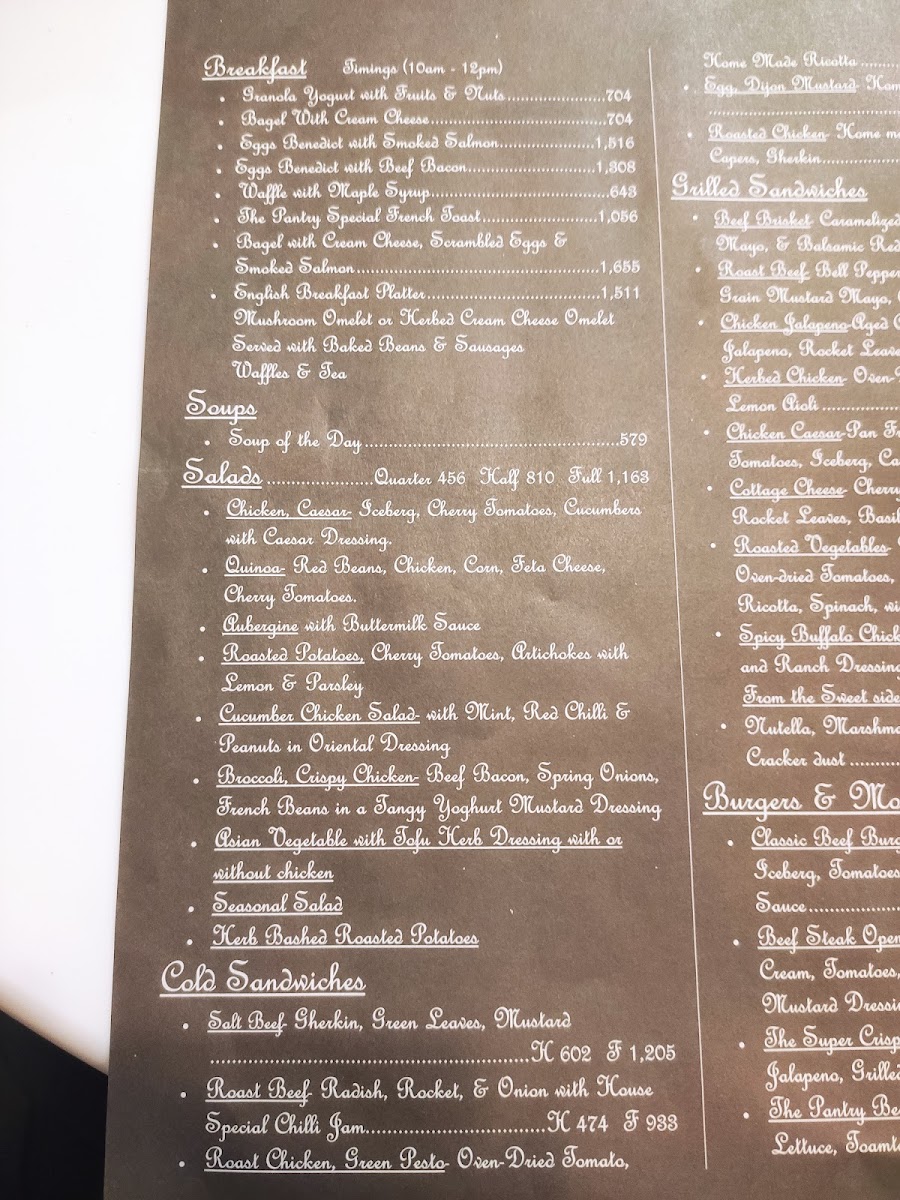 Breakfast Timings (10am - 12pm)
• Granola Yogurt with Fruits & Nuts......................704
• Bagel With Cream Cheese......................................704
• Eggs Benedict with Smoked Salmon.....................1,516
• Eggs Benedict with Beef Bacon............................1,308
• Waffle with Maple Syrup.......................................643
• The Pantry Special French Toast.........................1,056
• Bagel with Cream Cheese, Scrambled Eggs &
Smoked Salmon.....................................................1,655
• English Breakfast Platter......................................1,511
Mushroom Omelet or Herbed Cream Cheese Omelet
Served with Baked Beans & Sausages
Waffles & Tea
Soups
• Soup of the Day.......................................................579
Salads.......................Quarter 456 Half 810 Full 1,163
• Chicken, Caesar- Iceberg, Cherry Tomatoes, Cucumbers
with Caesar Dressing.
• Quinoa- Red Beans, Chicken, Corn, Feta Cheese,
Cherry Tomatoes.
• Aubergine with Buttermilk Sauce
• Roasted Potatoes, Cherry Tomatoes, Artichokes with
Lemon & Parsley
• Cucumber Chicken Salad- with Mint, Red Chilli &
Peanuts in Oriental Dressing
• Broccoli, Crispy Chicken- Beef Bacon, Spring Onions,
French Beans in a Tangy Yoghurt Mustard Dressing
• Asian Vegetable with Tofu Herb Dressing with or
without chicken
• Seasonal Salad
• Herb Bashed Roasted Potatoes
Cold Sandwiches
• Salt Beef- Gherkin, Green Leaves, Mustard
..............................................................H 602 F 1,205
• Roast Beef- Radish, Rocket, & Onion with House
Special Chilli Jam...................................H 474 F 933
• Roast Chicken, Green Pesto- Oven-Dried Tomato,
Home Made Ricotta........
• Egg, Dijon Mustard- Hom
..............................
• Roasted Chicken- Home m
Capers, Gherkin................
Grilled Sandwiches
• Beef Brisket- Caramelized
Mayo, & Balsamic Red
• Roast Beef- Bell Pepper
Grain Mustard Mayo,
• Chicken Jalapeno-Aged
Jalapeno, Rocket Leave
• Herbed Chicken- Oven-
Lemon Aioli................
• Chicken Caesar-Pan Fr
Tomatoes, Iceberg, Ca
• Cottage Cheese- Cherry
Rocket Leaves, Basil
• Roasted Vegetables-
Oven-dried Tomatoes,
Ricotta, Spinach, wi
• Spicy Buffalo Chick
and Ranch Dressing
From the Sweet side
• Nutella, Marshma
Cracker dust..........
Burgers & Mo
• Classic Beef Burg
Iceberg, Tomatoes
Sauce..................
• Beef Steak Open
Cream, Tomatoes,
Mustard Dressi
• The Super Crisp
Jalapeno, Grilled
• The Pantry Be
Lettuce, Toamt